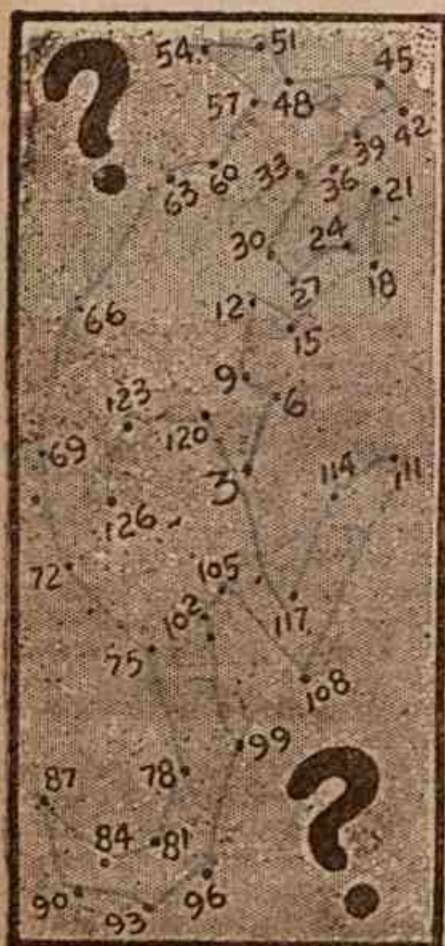 ?
54 51
45
57 48
42
39
63 60 33 36 21
30 24
18
27
12
66
15
9
6
123
120
69
3
114 111
126
72
105
102
117
75
108
99
78
87
84 81
96
90 93
?